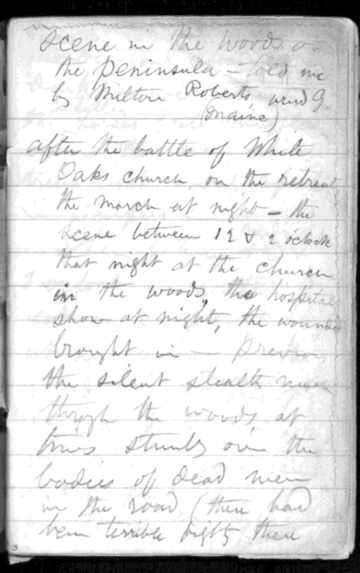 scene in the woods on
the peninsula – told me
by Milton Roberts, ward G
(Maine)
after the battle of White
Oaks church, on the retreat,
the march at night – the
scene between 12 & 2 o'clock
that night at the church
in the woods, the hospital
show at night, the wounded
brought in – previous,
the silent stealthy march
through the woods, at
times stumbling over the
bodies of dead men
in the road, (there had
been terrible fighting there